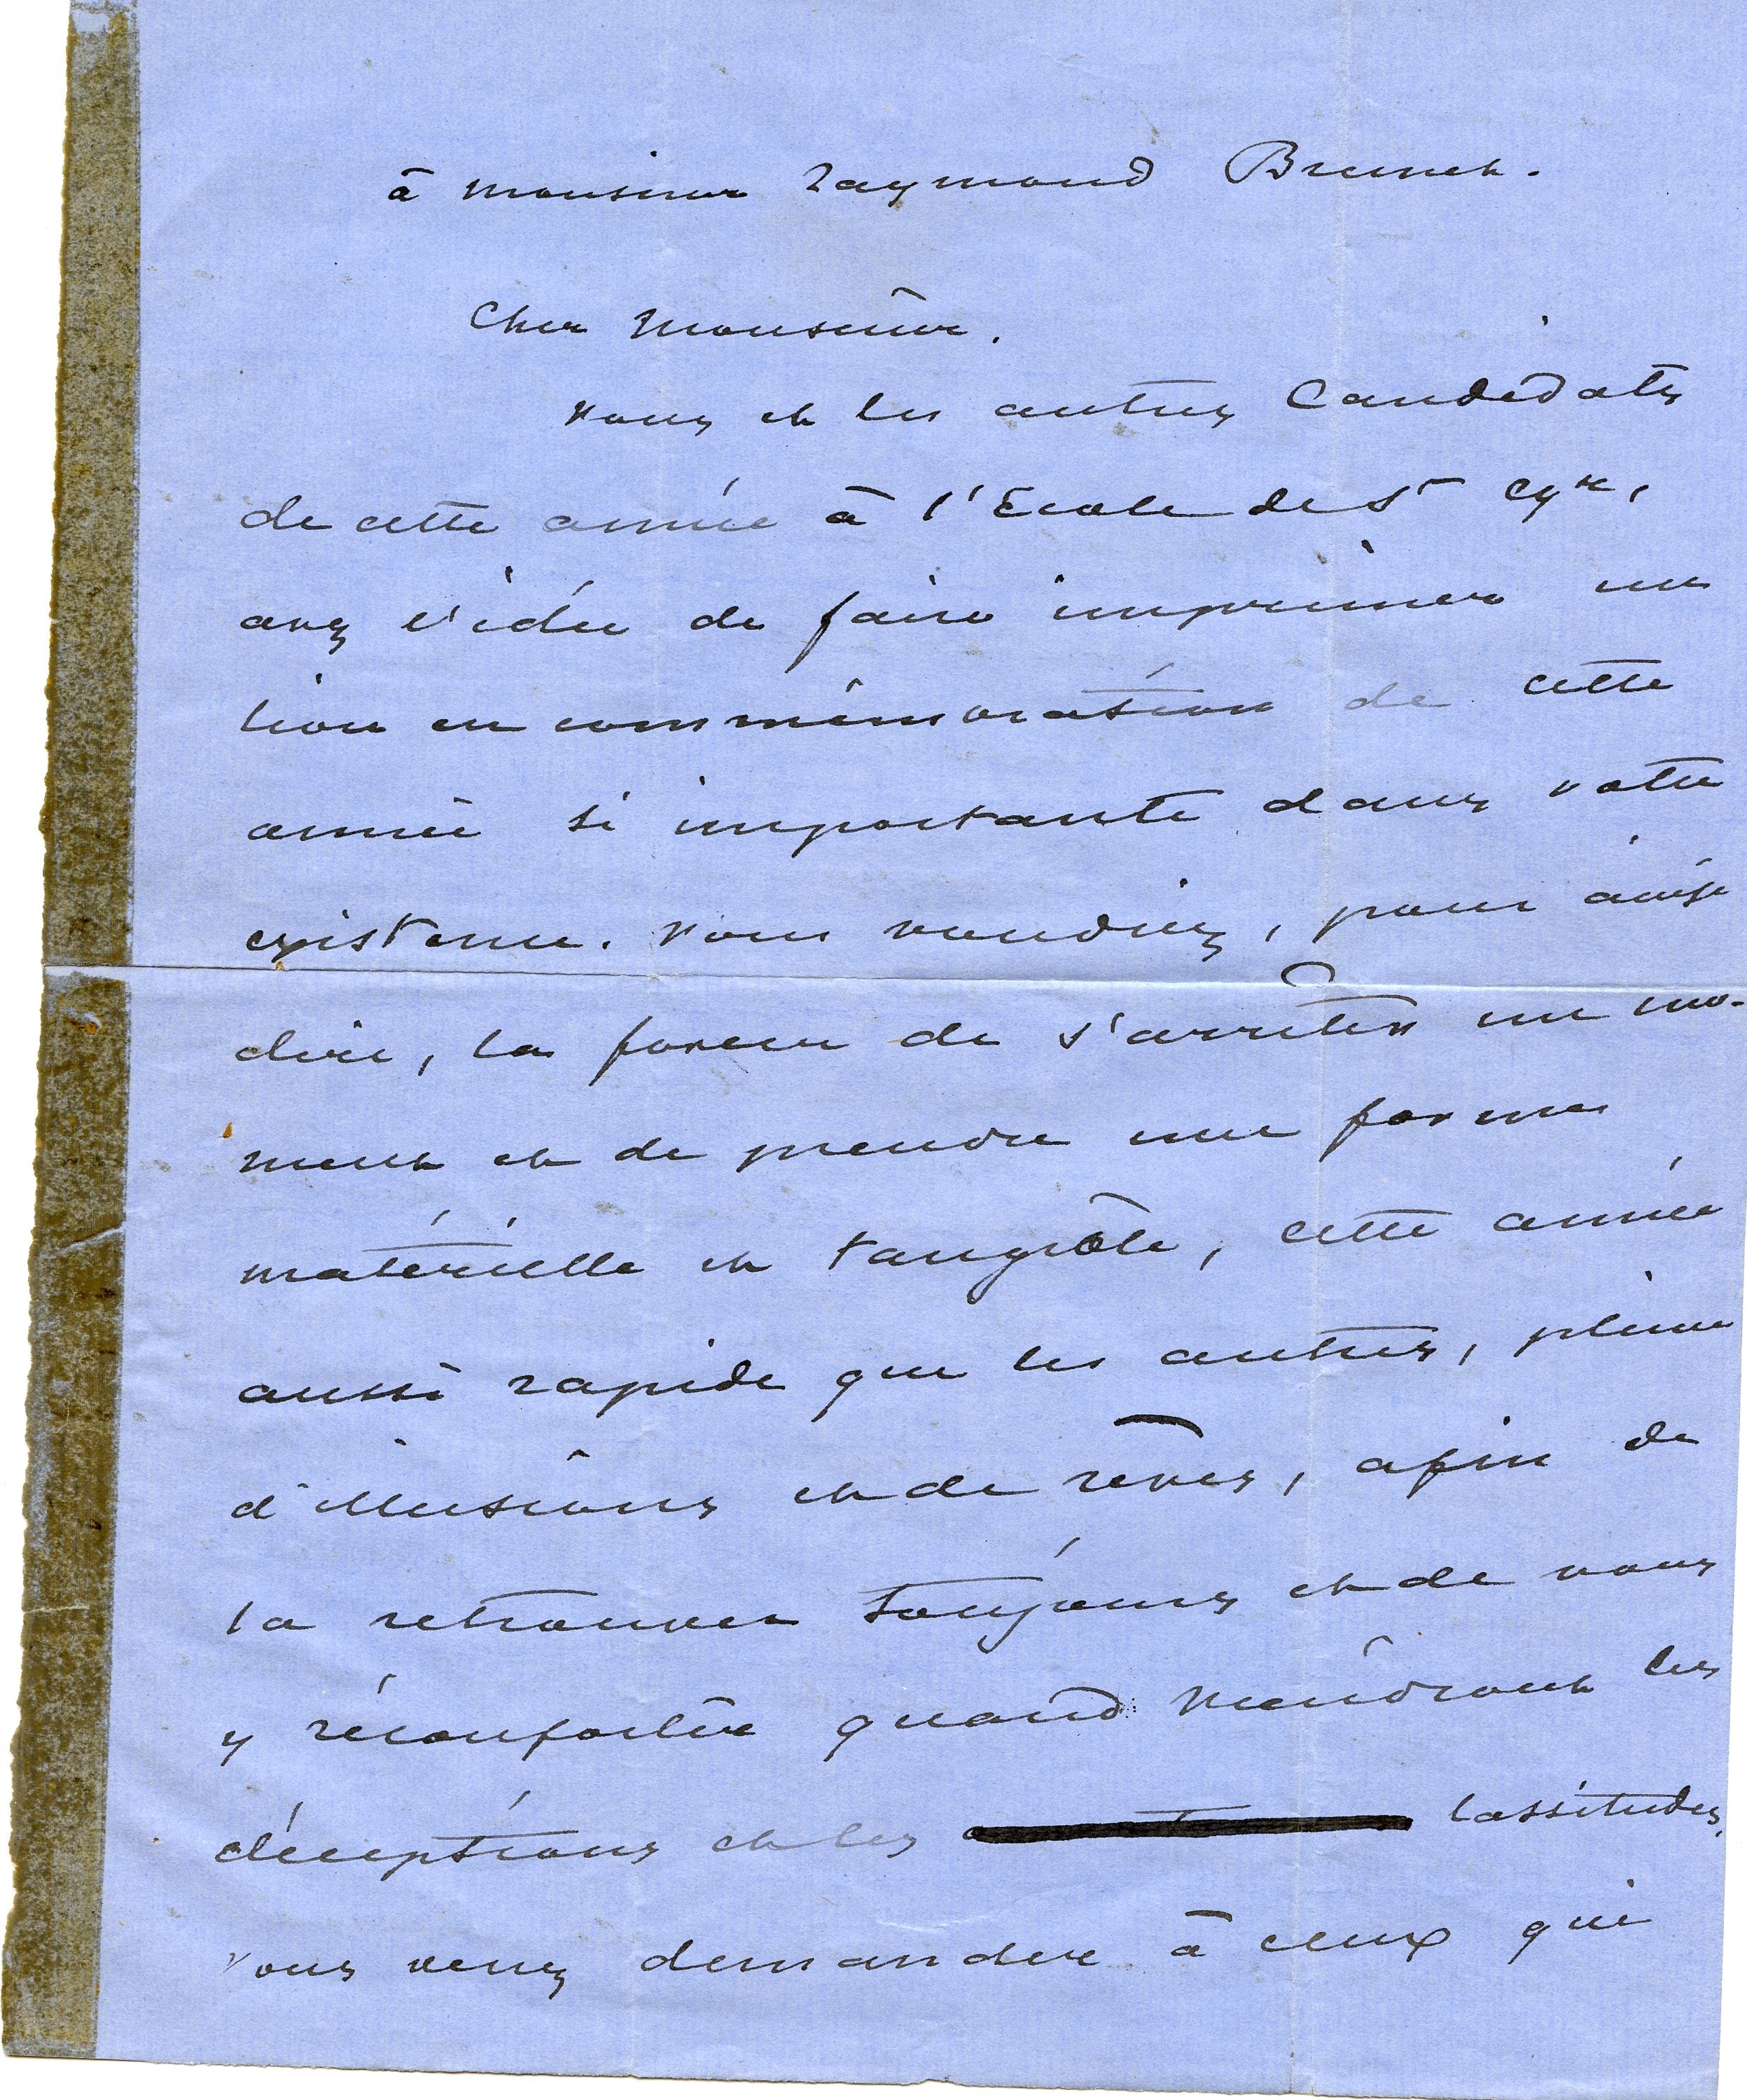 à monsieur Raymond Brunet.
Cher Monsieur.
Vous et les autres Candidats
de cette année à l'Ecole de St Cyr,
avez l'idée de faire imprimer un
en commémoration de cette
année si importante dans votre
existence. Vous voudriez, pour ainsi
dire, la forcer de s'arrêter un mo-
ment et de prendre une forme
matérielle et tangible, cette année
aussi rapide que les autres, pleine
d'illusions et de rêves, afin de
la retrouver toujours et de vous
y réconforter quand viendront les
déceptions et les lassitudes.
Vous venez demander à ceux qui